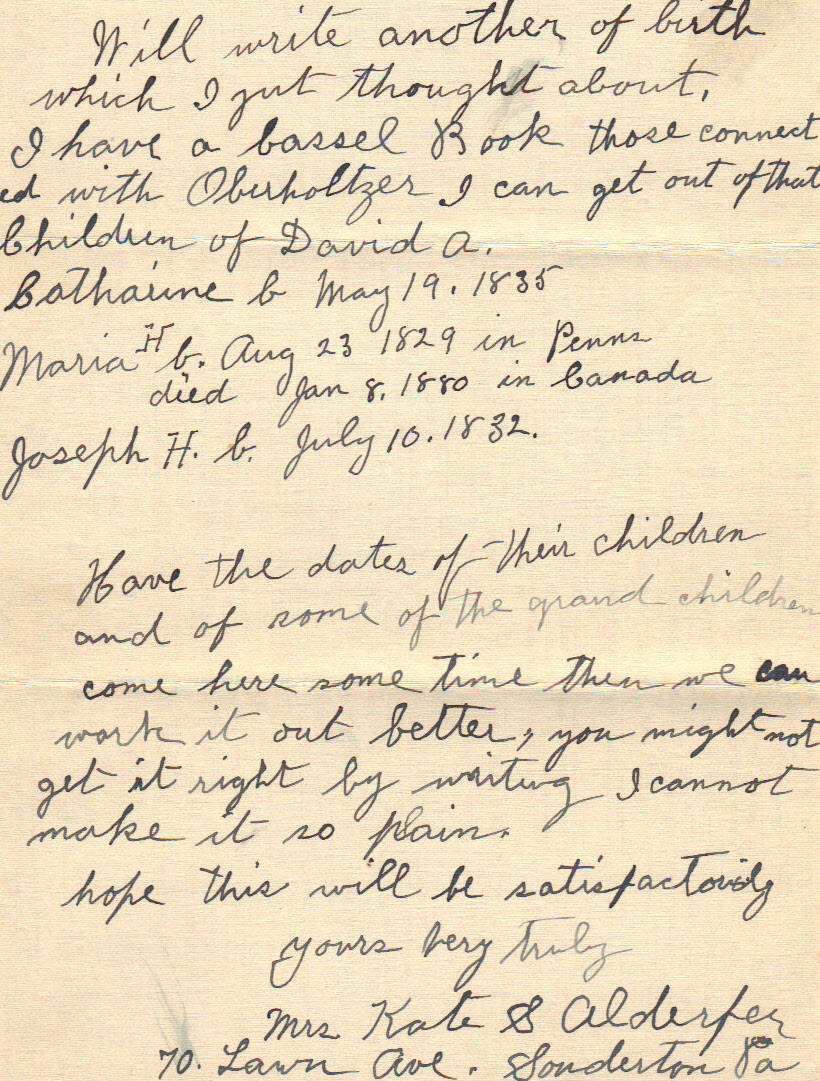 Will write another of birth
which I just thought about,
I have a bassel Book those connect
ed with Oberholtzer I can get out of that
Children of David A.
Catharine b May 19. 1835
Maria H b. Aug 23 1829 in Penna
died Jan 8, 1880 in Canada
Joseph H. b. July 10. 1832.
Have the dates of their children
and of some of the grand children
come here some time then we can
work it out better, you might not
get it right by writing I cannot
make it so plain.
hope this will be satisfactorily
yours very truly
Mrs Kate S Alderfer
70. Lawn Ave. Souderton Pa